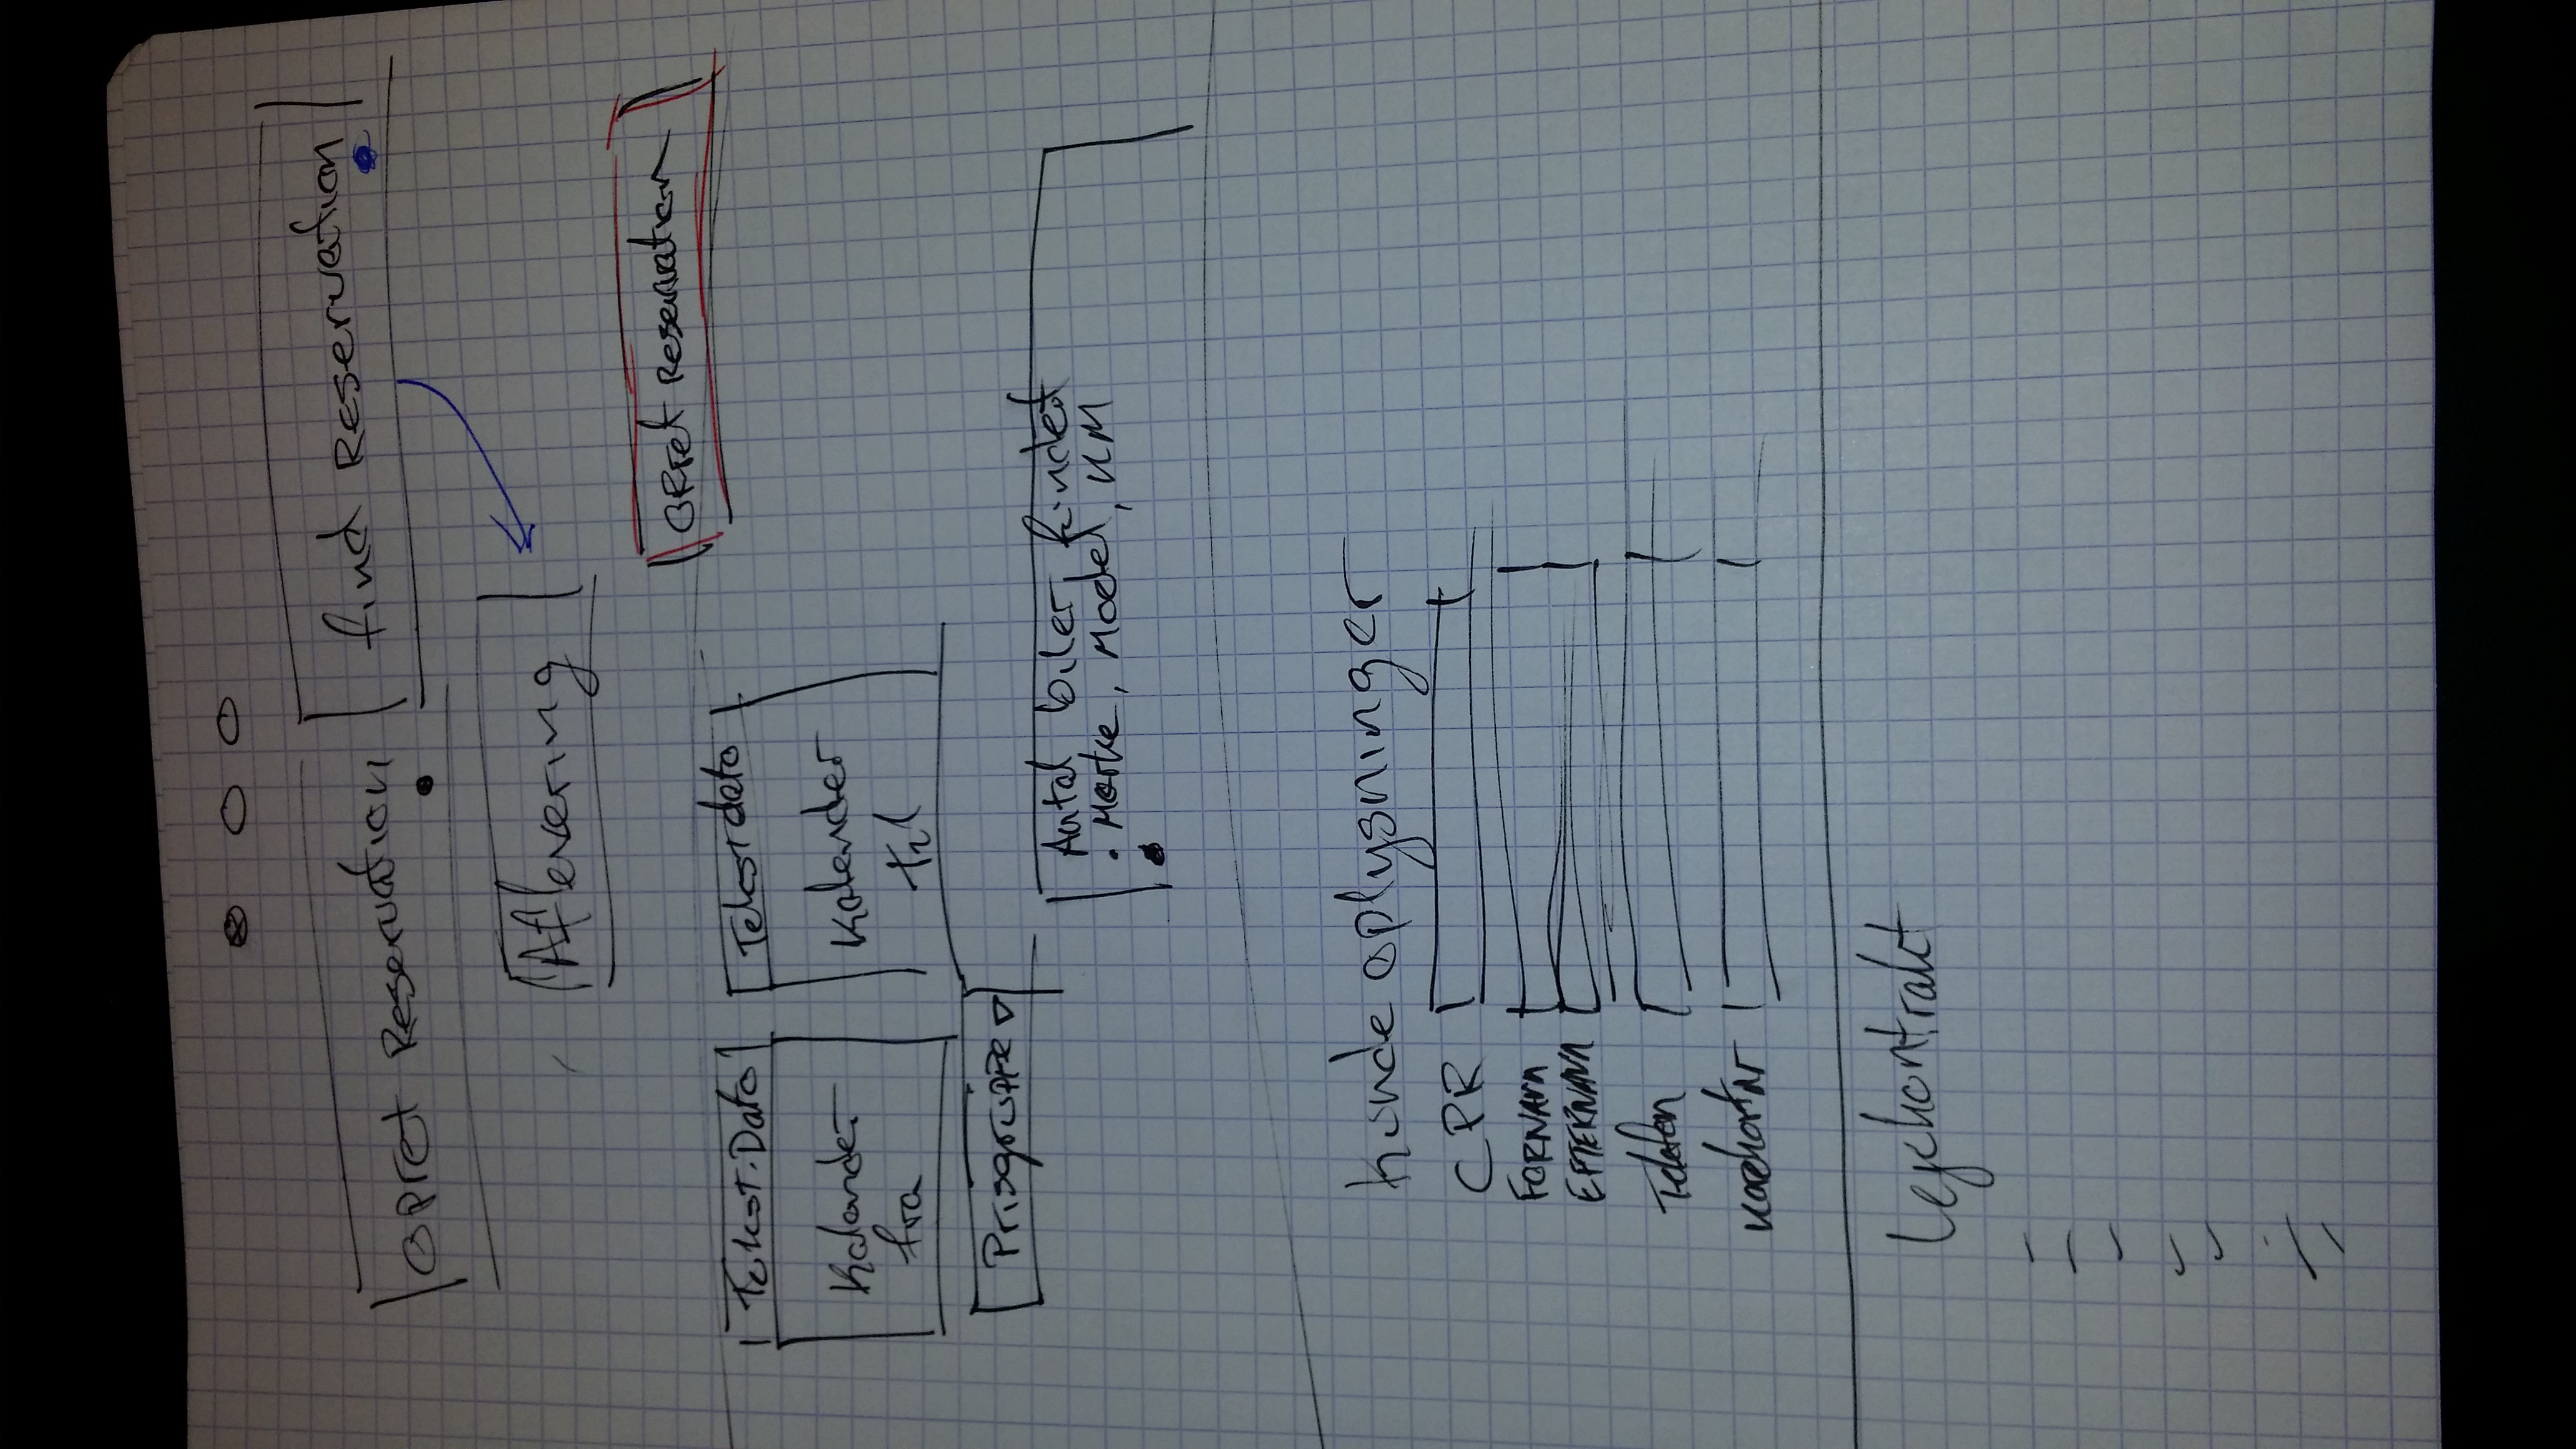 Opret Reservation
find Reservation
Aflevering
Opret Reservation
Tekst. Dato
Tekst dato
Kalender
fra
Kalender
til
Prisgruppe
Antal biler findet
• Mærke, Model, KM
Kunde oplysninger
CPR
FORNAVN
EFTERNAVN
Telefon
Kørekortnr
Lejekontrakt